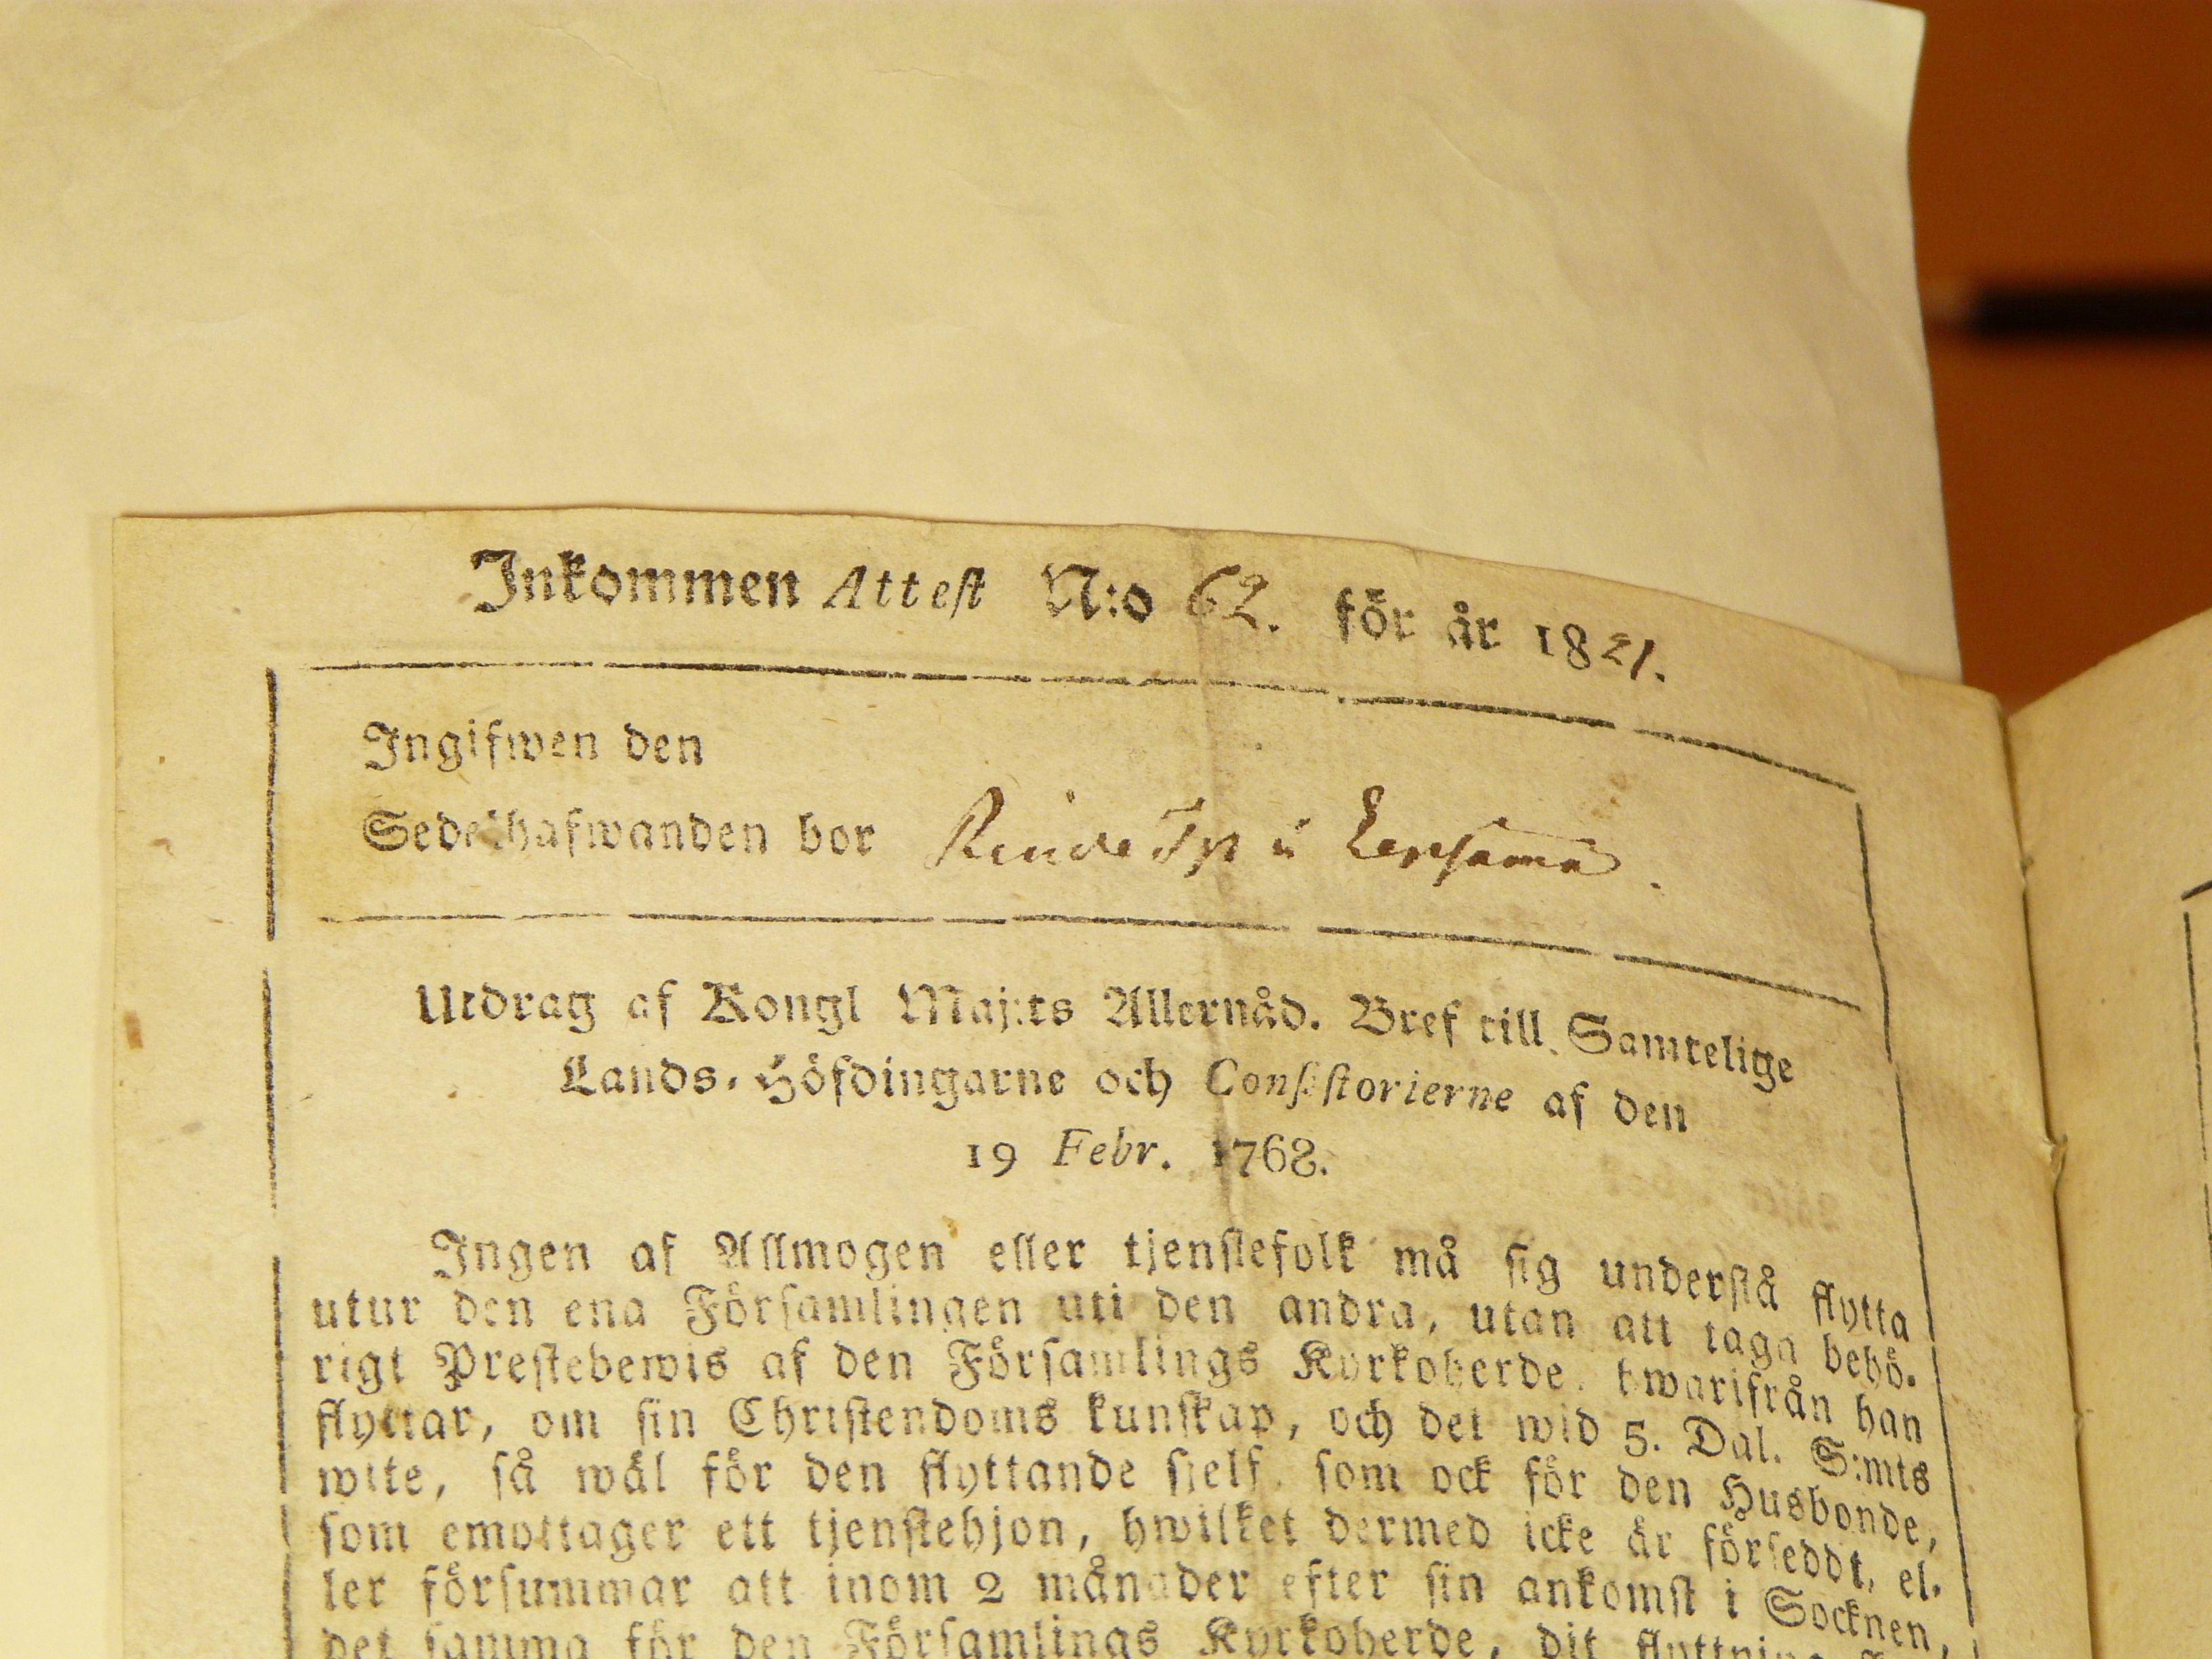 Inkommen Attest N:o 62. för år 1821.
Ingifwen den
Sedelhafwanden bor
Utdrag af Kongl Maj:ts Allernåd. Bref till Samtelige
Lands-Höfdingarne och Consistorierne af den
19 Febr. 1768.
Ingen af Allmogen eller tjenstefolk må sig understå flytta
utur den ena Församlingen uti den andra, utan att taga behö-
rigt Prestebewis af den Församlings Kyrkoherde, hwarifrån han
flyttar, om sin Christendoms kunskap, och det wid 5. Dal. S:mts
wite, så wäl för den flyttande sjelf, som ock för den Husbonde,
som emottager ett tjenstehjon, hwilket dermed icke är förseddt, el-
ler försummar att inom 2 månader efter sin ankomst i Socknen,
det samma för den Församlings Kyrkoherde, dit